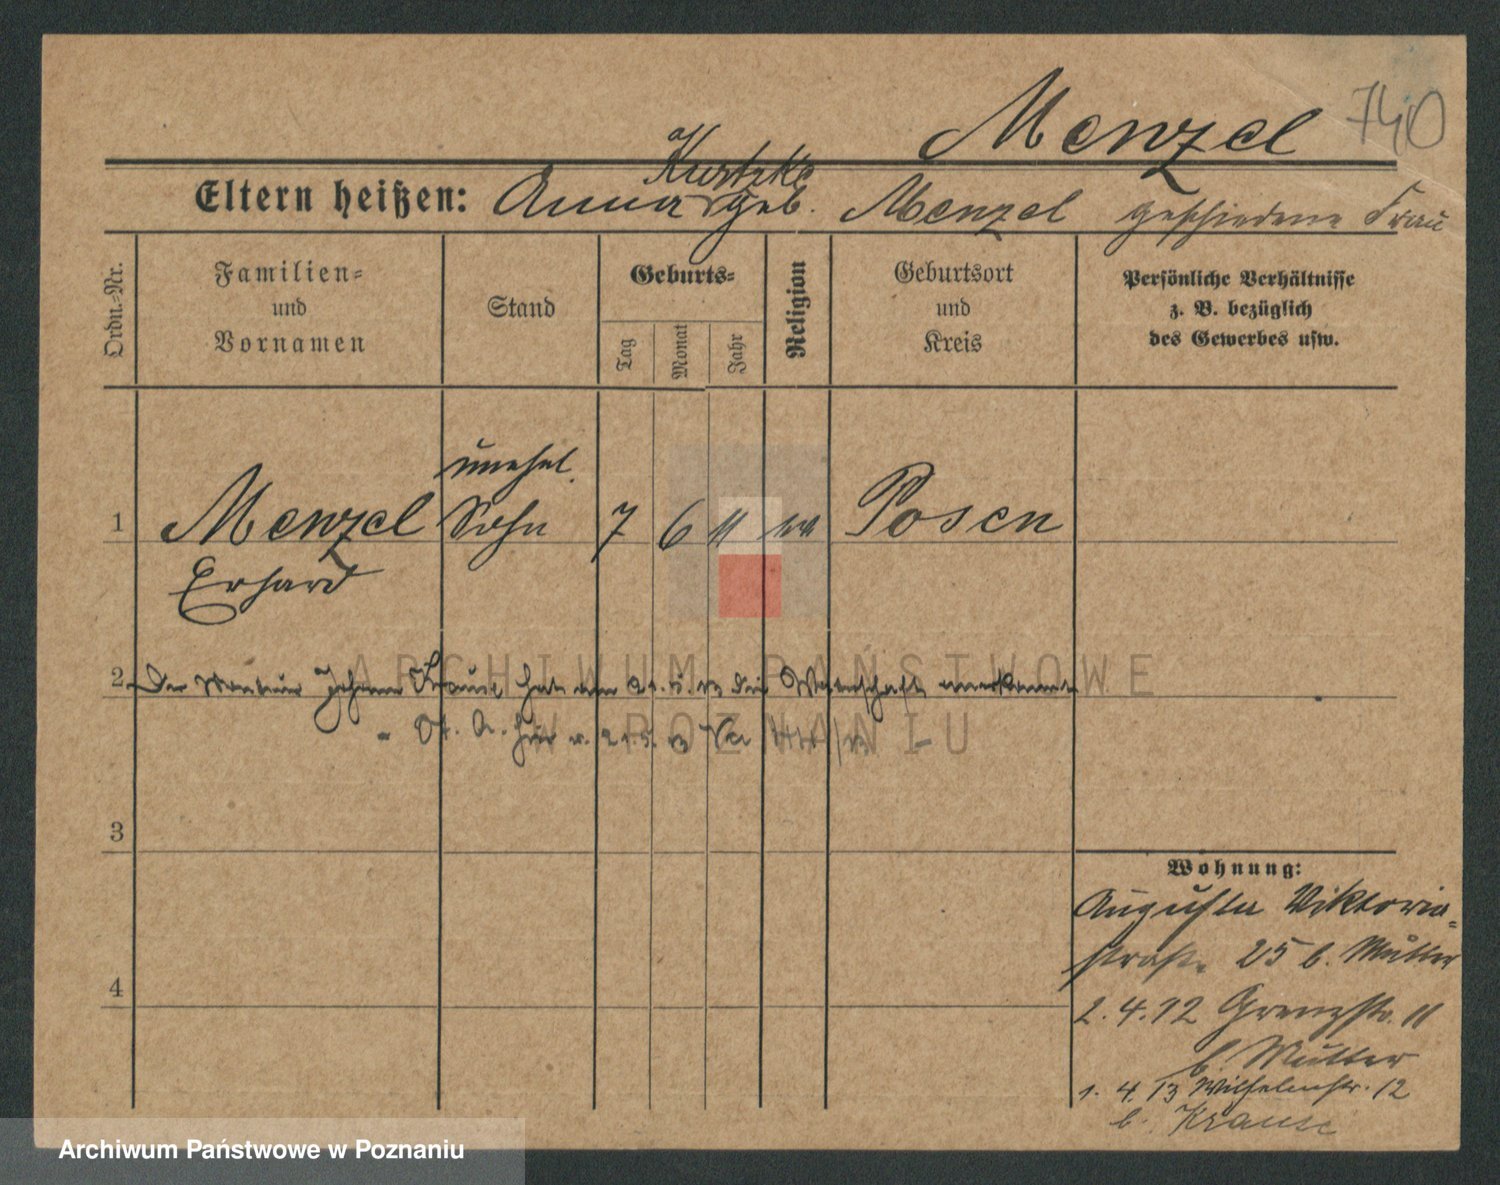 Menzel 740
Kurtzke
Eltern heißen: Anna geb. Menzel geschiedene Frau
Ordn.-Nr.
Familien-
und
Vornamen
Stand
Geburts-
Tag
Monat
Jahr
Religion
Geburtsort
und
Kreis
Persönliche Verhältnisse
z. B. bezüglich
des Gewerbes usw.
unehel.
1 Menzel Sohn 7 6 11 Posen
Erhard
2 Der Johann Krause hat am 21.5.13 die Vaterschaft anerkannt
21.5.13
3
4
Wohnung:
Augusta Viktoria-
straße 25 b. Mutter
2.4.12 Grenzstr. 11
b. Mutter
1. 4. 13 Wilhelmstr. 12
b. Krause
ARCHIWUM PAŃSTWOWE
W POZNANIU
Archiwum Państwowe w Poznaniu